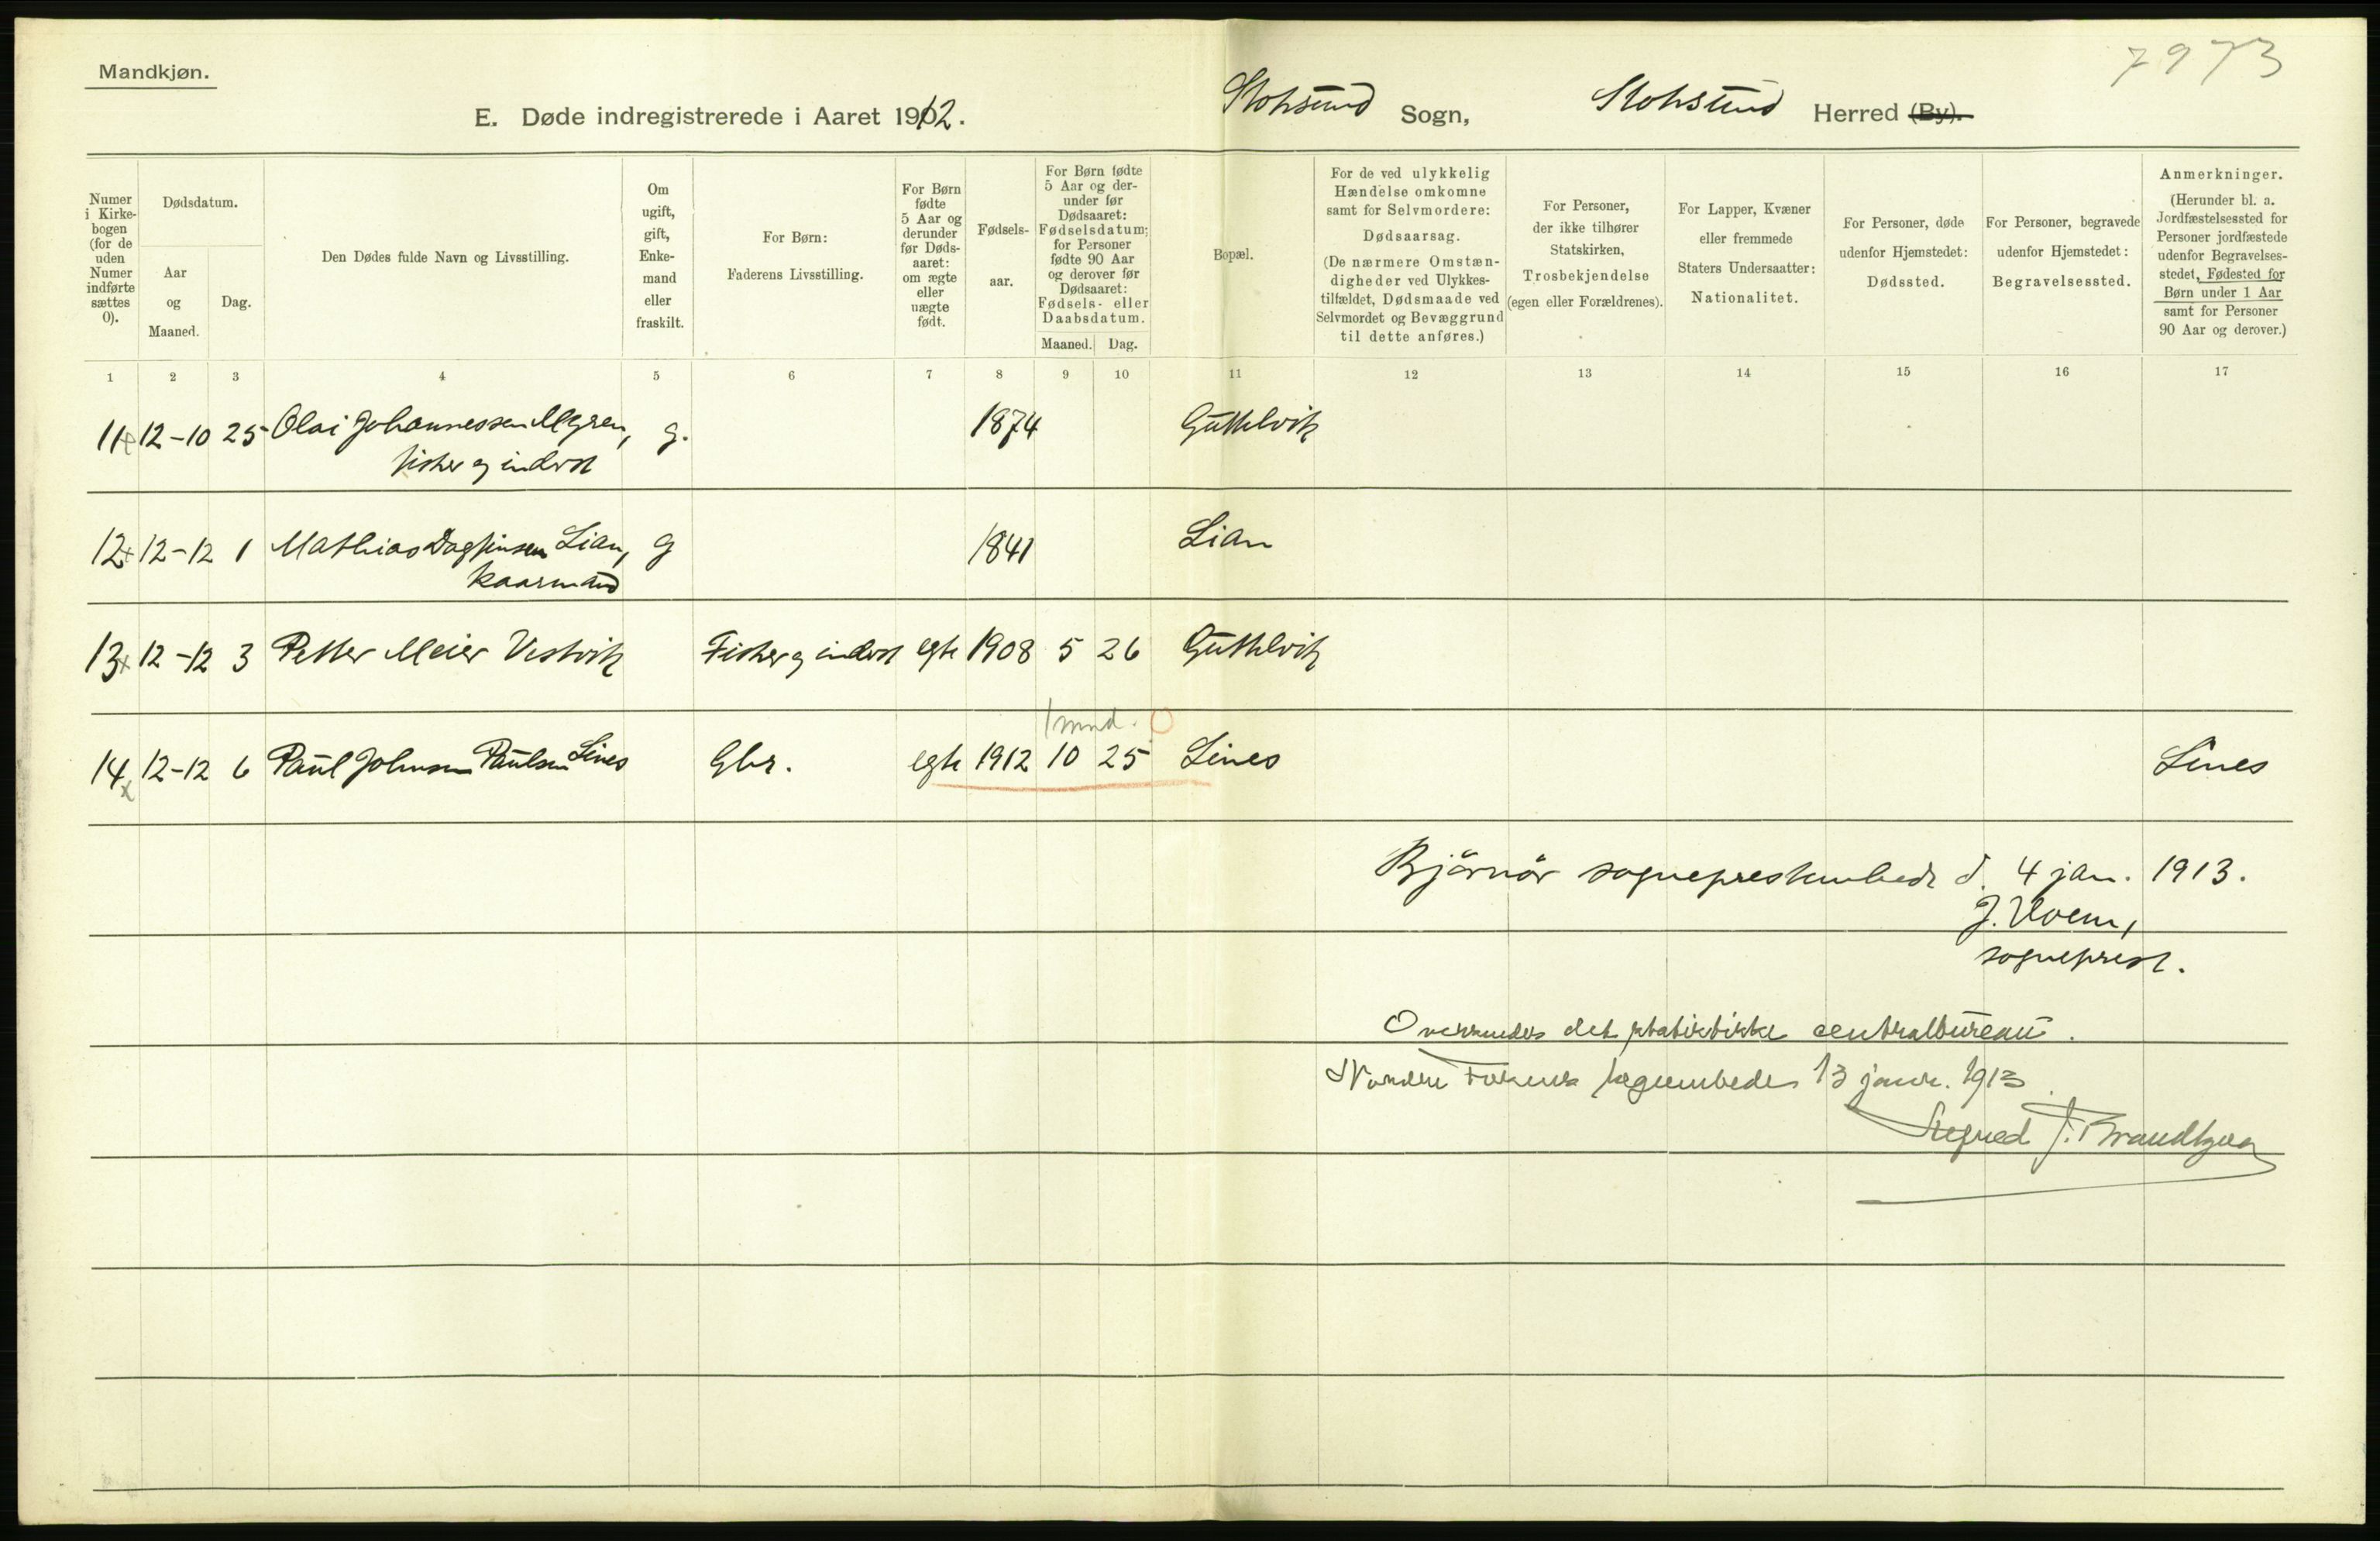 7973
Mandkjøn.
E. Døde indregistrerede i Aaret 1912.
Stoksund Sogn, Stoksund Herred (By).
Numer i Kirke-bogen (for de uden Numer indførte sættes 0).
Dødsdatum.
Aar og Maaned.
Dag.
Den Dødes fulde Navn og Livsstilling.
Om ugift, gift, Enke-mand eller fraskilt.
For Børn: Faderens Livsstilling.
For Børn fødte 5 Aar og derunder før Døds-aaret: om ægte eller uægte født.
Fødsels-aar.
For Børn fødte 5 Aar og der-under før Dødsaaret: Fødselsdatum; for Personer fødte 90 Aar og derover før Dødsaaret: Fødsels- eller Daabsdatum.
Maaned. Dag.
Bopæl.
For de ved ulykkelig Hændelse omkomne samt for Selvmordere: Dødsaarsag. (De nærmere Omstæn-digheder ved Ulykkes-tilfældet, Dødsmaade ved Selvmordet og Bevæggrund til dette anføres.)
For Personer, der ikke tilhører Statskirken, Trosbekjendelse (egen eller Forældrenes).
For Lapper, Kvæner eller fremmede Staters Undersaatter: Nationalitet.
For Personer, døde udenfor Hjemstedet: Dødssted.
For Personer, begravede udenfor Hjemstedet: Begravelsessted.
Anmerkninger. (Herunder bl. a. Jordfæstelsessted for Personer jordfæstede udenfor Begravelses-stedet, Fødested for Børn under 1 Aar samt for Personer 90 Aar og derover.)
1 2 3 4 5 6 7 8 9 10 11 12 13 14 15 16 17
11 12-10 25 Olai Johannessen Myren, g. 1874 Guttelvik
fisker og inderst
12 12-12 1 Mathias Dagfinsen Lian, g 1841 Lian
kaarmand
13 12-12 3 Petter Meier Vestvik Fisker og inderst egte 1908 5 26 Guttelvik
1 mnd.
14 12-12 6 Paul Johnsen Paulsen Lines Gbr. egte 1912 10 25 Lines Lines
Bjørnør sogneprestembede d. 4 jan. 1913.
J. Hoem,
sogneprest.
Oversendes det statistiske centralbureau.
Nordre Fosens lægeembede 13 januar. 1913
Sigfred F. Brandtzæg